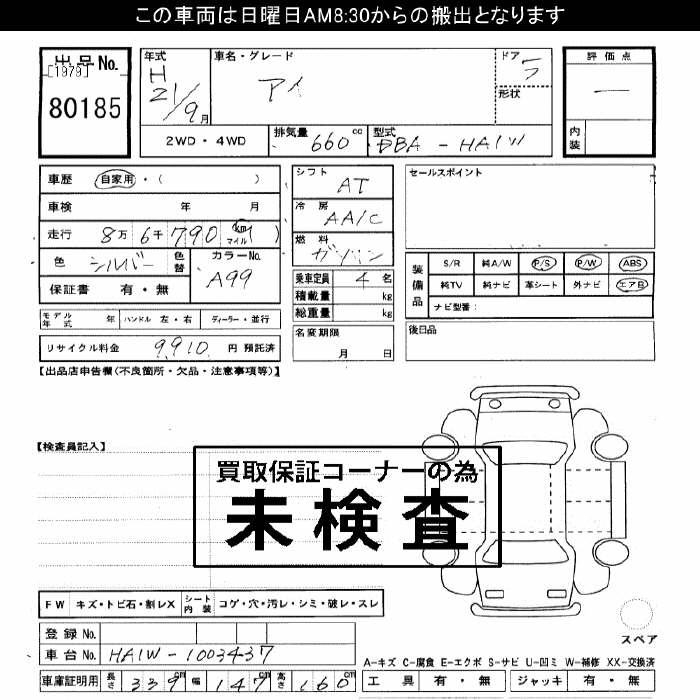 この車両は日曜日AM8:30からの搬出となります
出品No.
[1979]
80185
年式
H
21/9月
車名・グレード
アイ
ドア
5
形状
評価点
―
内装
2WD・4WD
排気量 660 cc
型式 DBA-HA1W
車歴 自家用・( )
車検 年 月
走行 8万6千790 km マイル ( )
色 シルバー 色替
カラーNo.
A99
保証書 有・無
シフト
AT
冷房
AA/C
燃料
ガソリン
乗車定員 4名
積載量 kg
総重量 kg
名変期限
月 日
セールスポイント
装備品
S/R 純A/W P/S P/W ABS
純TV 純ナビ 革シート 外ナビ エアB
ナビ型番:
後日品
モデル年式 年 ハンドル 左・右 ディーラー・並行
リサイクル料金 9,910 円 預託済
【出品店申告欄(不良箇所・欠品・注意事項等)】
【検査員記入】
買取保証コーナーの為
未検査
FW キズ・トビ石・割レX シート内装 コゲ・穴・汚レ・シミ・破レ・スレ
登録No.
車台No. HA1W-1003437
車庫証明用 長さ 339cm 幅 147cm 高さ 160cm
スペア
A-キズ C-腐食 E-エクボ S-サビ U-凹ミ W-補修 XX-交換済
工具 有・無 ジャッキ 有・無